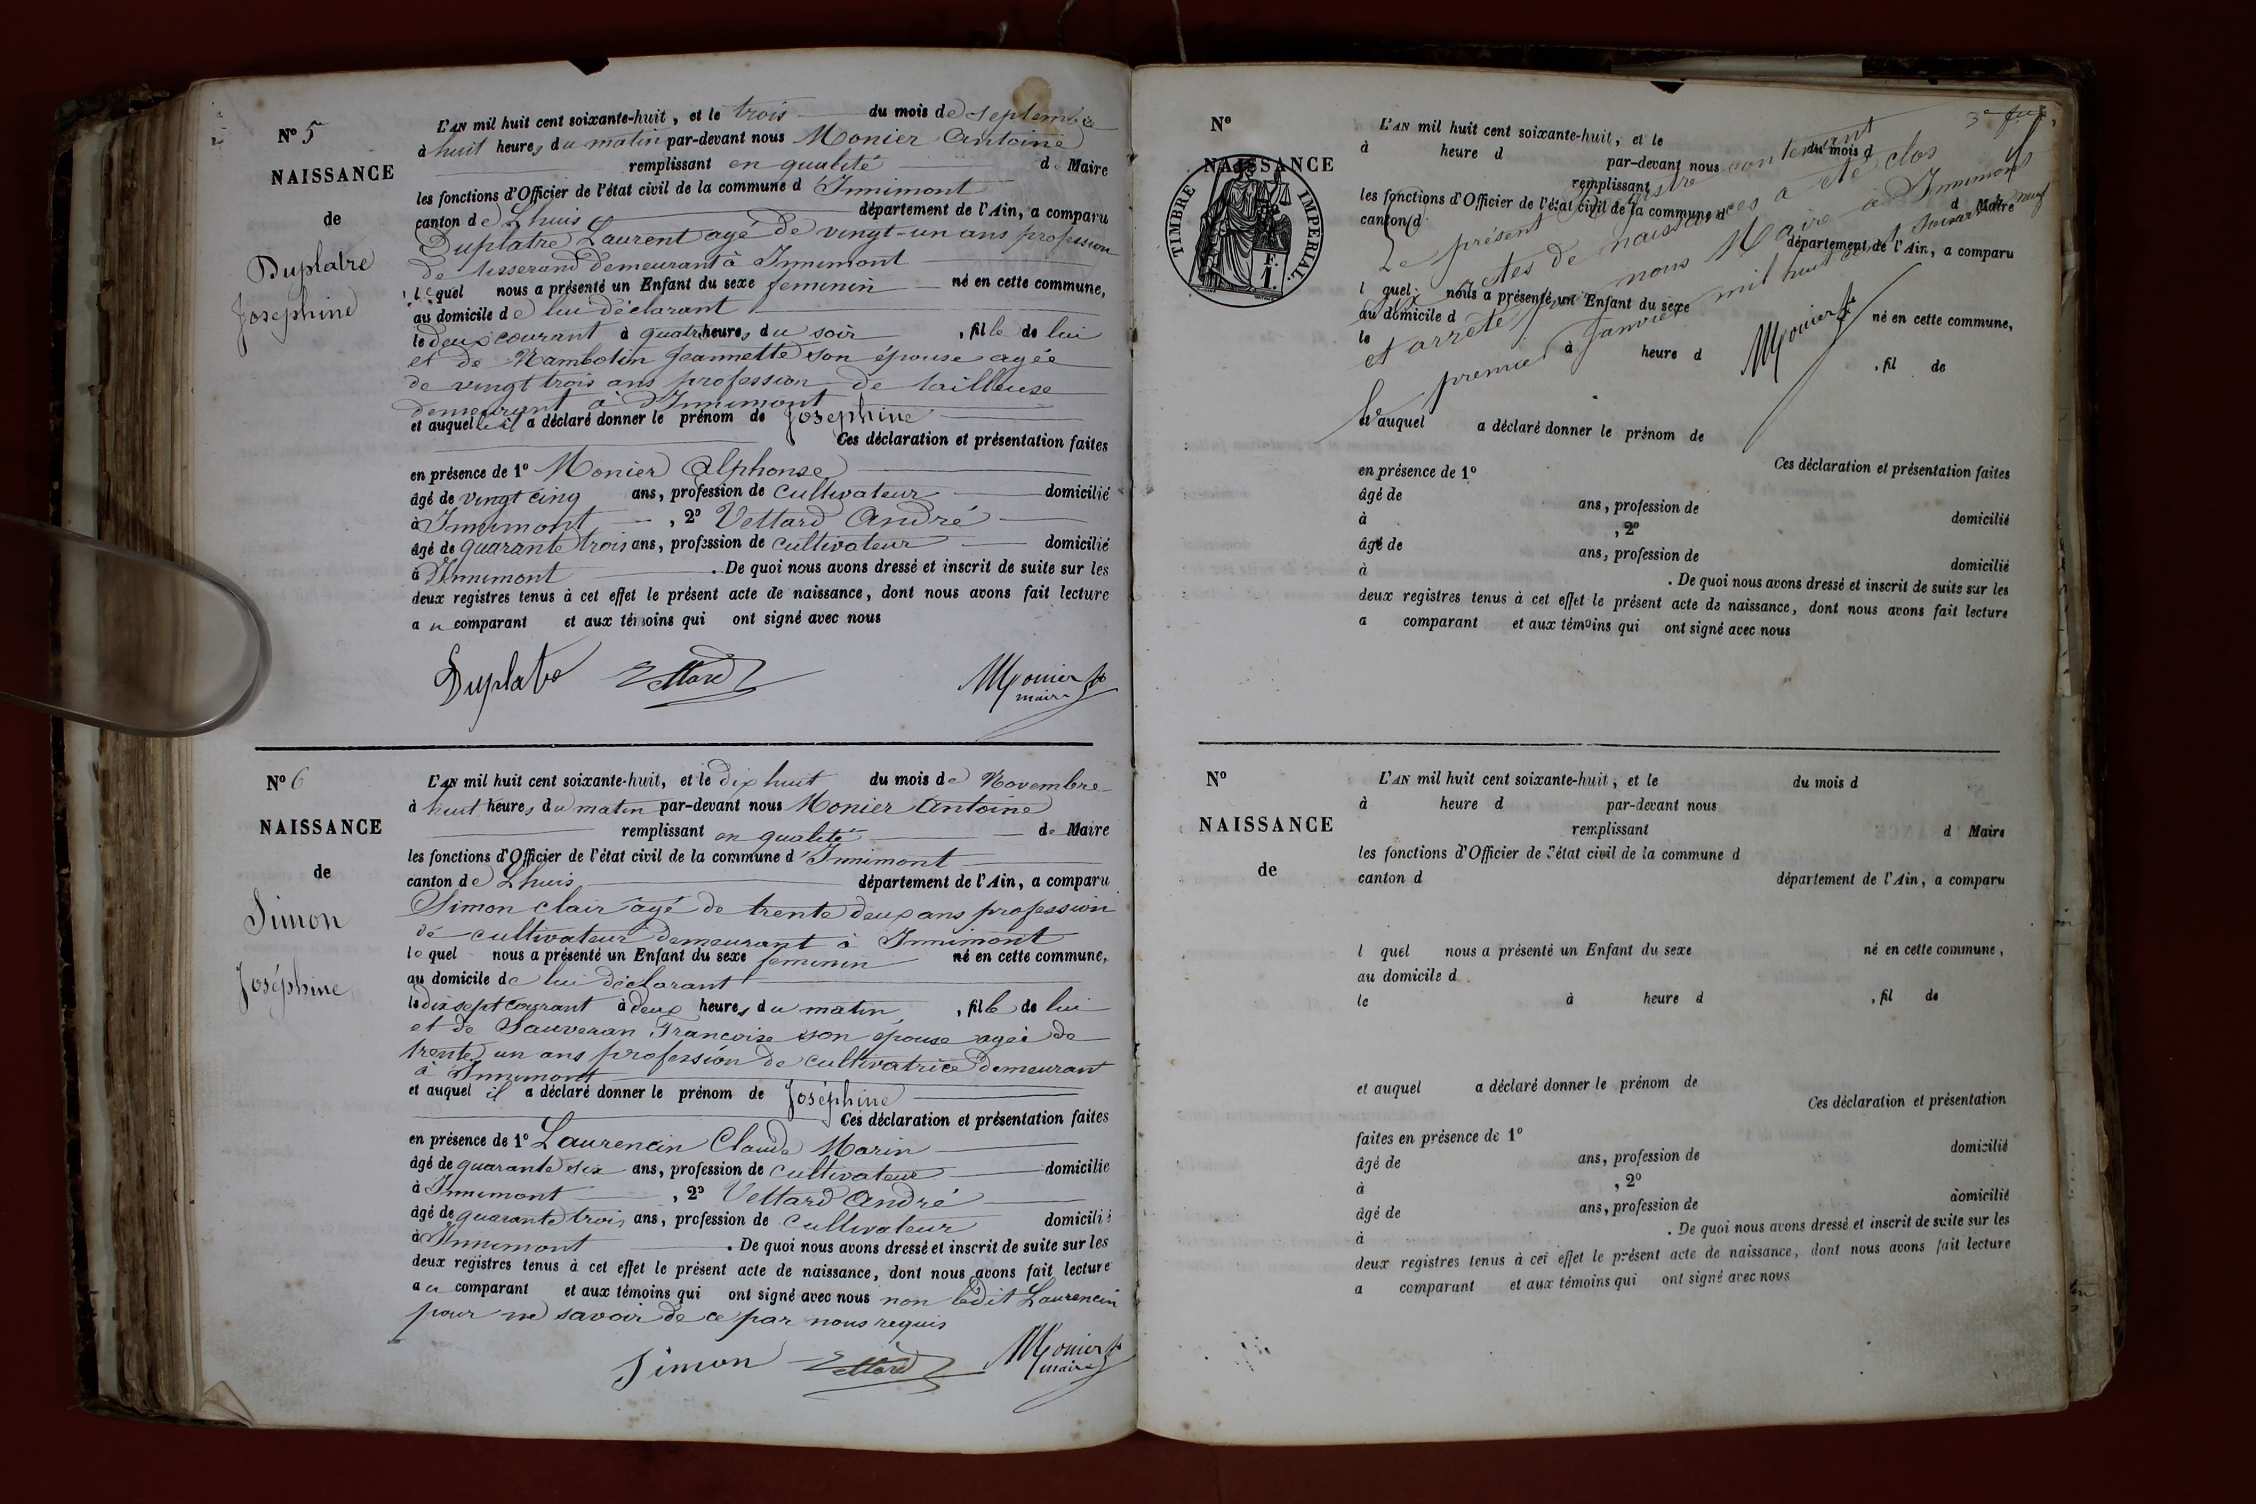 N° 5
NAISSANCE
de
Duplatre
Joséphine
L'AN mil huit cent soixante-huit, et le trois du mois de Septembre
à huit heures du matin par-devant nous Monier Antoine
remplissant en qualité de Maire
les fonctions d'Officier de l'état civil de la commune d Innimont
canton de Lhuis département de l'Ain, a comparu
Duplatre Laurent agé de vingt-un ans profession
de tisserand demeurant à Innimont
lequel nous a présenté un Enfant du sexe feminin né en cette commune,
au domicile de lui déclarant
le deux courant à quatre heures du soir, fille de lui
et de Mambotin Jeannette son épouse agée
de vingt trois ans profession de tailleuse
demeurant à d'Innimont
et auquel il a déclaré donner le prénom de Joséphine
Ces déclaration et présentation faites
en présence de 1° Monier Alphonse
âgé de vingt cinq ans, profession de cultivateur domicilié
à Innimont, 2° Vettard André
âgé de quarante trois ans, profession de cultivateur domicilié
à Innimont. De quoi nous avons dressé et inscrit de suite sur les
deux registres tenus à cet effet le présent acte de naissance, dont nous avons fait lecture
au comparant et aux témoins qui ont signé avec nous
Duplatre Vettard Monier
maire
N° 6
NAISSANCE
de
Simon
Joséphine
L'AN mil huit cent soixante-huit, et le dix huit du mois de Novembre
à huit heures du matin par-devant nous Monier Antoine
remplissant en qualité de Maire
les fonctions d'Officier de l'état civil de la commune d'Innimont
canton de Lhuis département de l'Ain, a comparu
Simon clair agé de trente deux ans profession
de cultivateur demeurant à Innimont
lequel nous a présenté un Enfant du sexe feminin né en cette commune,
au domicile de lui déclarant
le dix sept courant à deux heures du matin, fille de lui
et de Sauveran Francoise son épouse agée de
trente un ans profession de cultivatrice demeurant
à Innimont
et auquel il a déclaré donner le prénom de Joséphine
Ces déclaration et présentation faites
en présence de 1° Laurencin Claude Marin
âgé de quarante six ans, profession de cultivateur domicilié
à Innimont, 2° Vettard André
âgé de quarante trois ans, profession de cultivateur domicilié
à Innimont. De quoi nous avons dressé et inscrit de suite sur les
deux registres tenus à cet effet le présent acte de naissance, dont nous avons fait lecture
au comparant et aux témoins qui ont signé avec nous non ledit Laurencin
pour ne savoir de ce par nous requis
Simon Vettard Monier
maire
3e
N°
NAISSANCE
TIMBRE IMPERIAL.
F.
1.
L'AN mil huit cent soixante-huit, et le du mois d
à heure d par-devant nous
remplissant d Maire
les fonctions d'Officier de l'état civil de la commune d
canton d département de l'Ain, a comparu
l quel nous a présenté un Enfant du sexe né en cette commune,
au domicile d
le à heure d, fil de
et auquel a déclaré donner le prénom de
Le présent registre contenant
six actes de naissances a été clos
et arrêté par nous Maire à Innimont
le premier Janvier mil huit cent soixante neuf
Monier
Ces déclaration et présentation faites
en présence de 1°
âgé de ans, profession de domicilié
à, 2°
âgé de ans, profession de domicilié
à. De quoi nous avons dressé et inscrit de suite sur les
deux registres tenus à cet effet le présent acte de naissance, dont nous avons fait lecture
a comparant et aux témoins qui ont signé avec nous
N°
NAISSANCE
de
L'AN mil huit cent soixante-huit, et le du mois d
à heure d par-devant nous
remplissant d Maire
les fonctions d'Officier de l'état civil de la commune d
canton d département de l'Ain, a comparu
l quel nous a présenté un Enfant du sexe né en cette commune,
au domicile d
le à heure d, fil de
et auquel a déclaré donner le prénom de
Ces déclaration et présentation
faites en présence de 1°
âgé de ans, profession de domicilié
à, 2°
âgé de ans, profession de domicilié
à. De quoi nous avons dressé et inscrit de suite sur les
deux registres tenus à cet effet le présent acte de naissance, dont nous avons fait lecture
a comparant et aux témoins qui ont signé avec nous